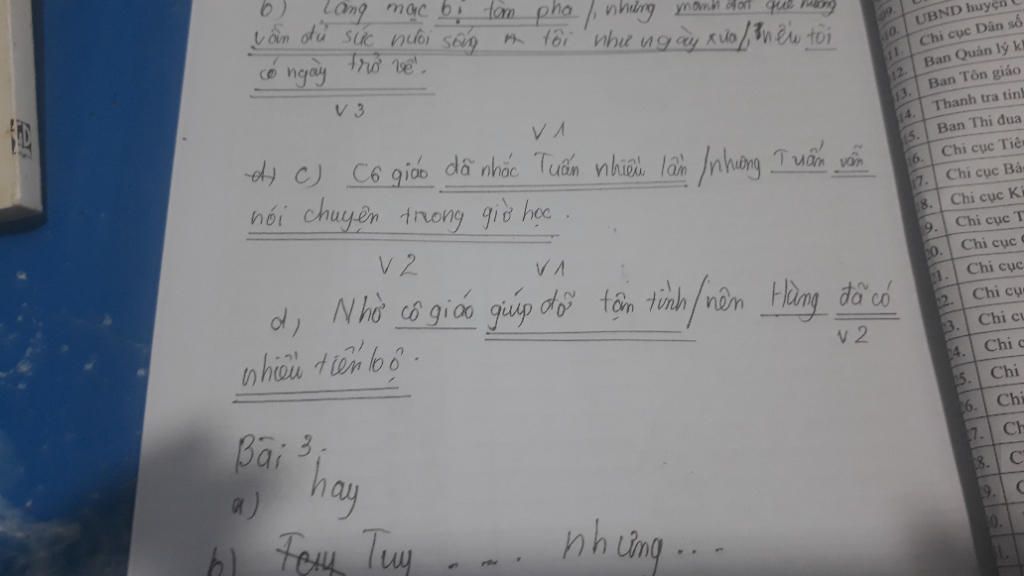 b) Làng mạc bị tàn phá /, nhưng mảnh đất quê hương
vẫn đủ sức nuôi sống tôi như ngày xưa /, nếu tôi
có ngày trở về.
V3
V1
c) Cô giáo đã nhắc Tuấn nhiều lần / nhưng Tuấn vẫn
nói chuyện trong giờ học.
V2 V1
d, Nhờ cô giáo giúp đỡ tận tình / nên Hằng đã có
V2
nhiều tiến bộ.
Bài 3.
a) hay
b) Tuy .... nhưng ...
UBND huyện
Chi cục Dân số
Ban Quản lý
Ban Tôn giáo
Thanh tra tỉnh
Ban Thi đua
Chi cục
Chi cục
Chi cục
Chi cục
Chi cục
Chi cục